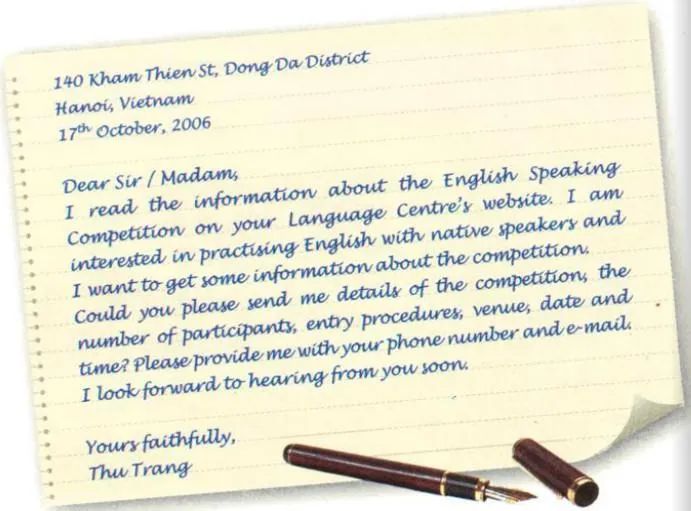 140 Kham Thien St, Dong Da District
Hanoi, Vietnam
17th October, 2006
Dear Sir / Madam,
I read the information about the English Speaking
Competition on your Language Centre's website. I am
interested in practising English with native speakers and
I want to get some information about the competition.
Could you please send me details of the competition, the
number of participants, entry procedures, venue, date and
time? Please provide me with your phone number and e-mail.
I look forward to hearing from you soon.
Yours faithfully,
Thu Trang